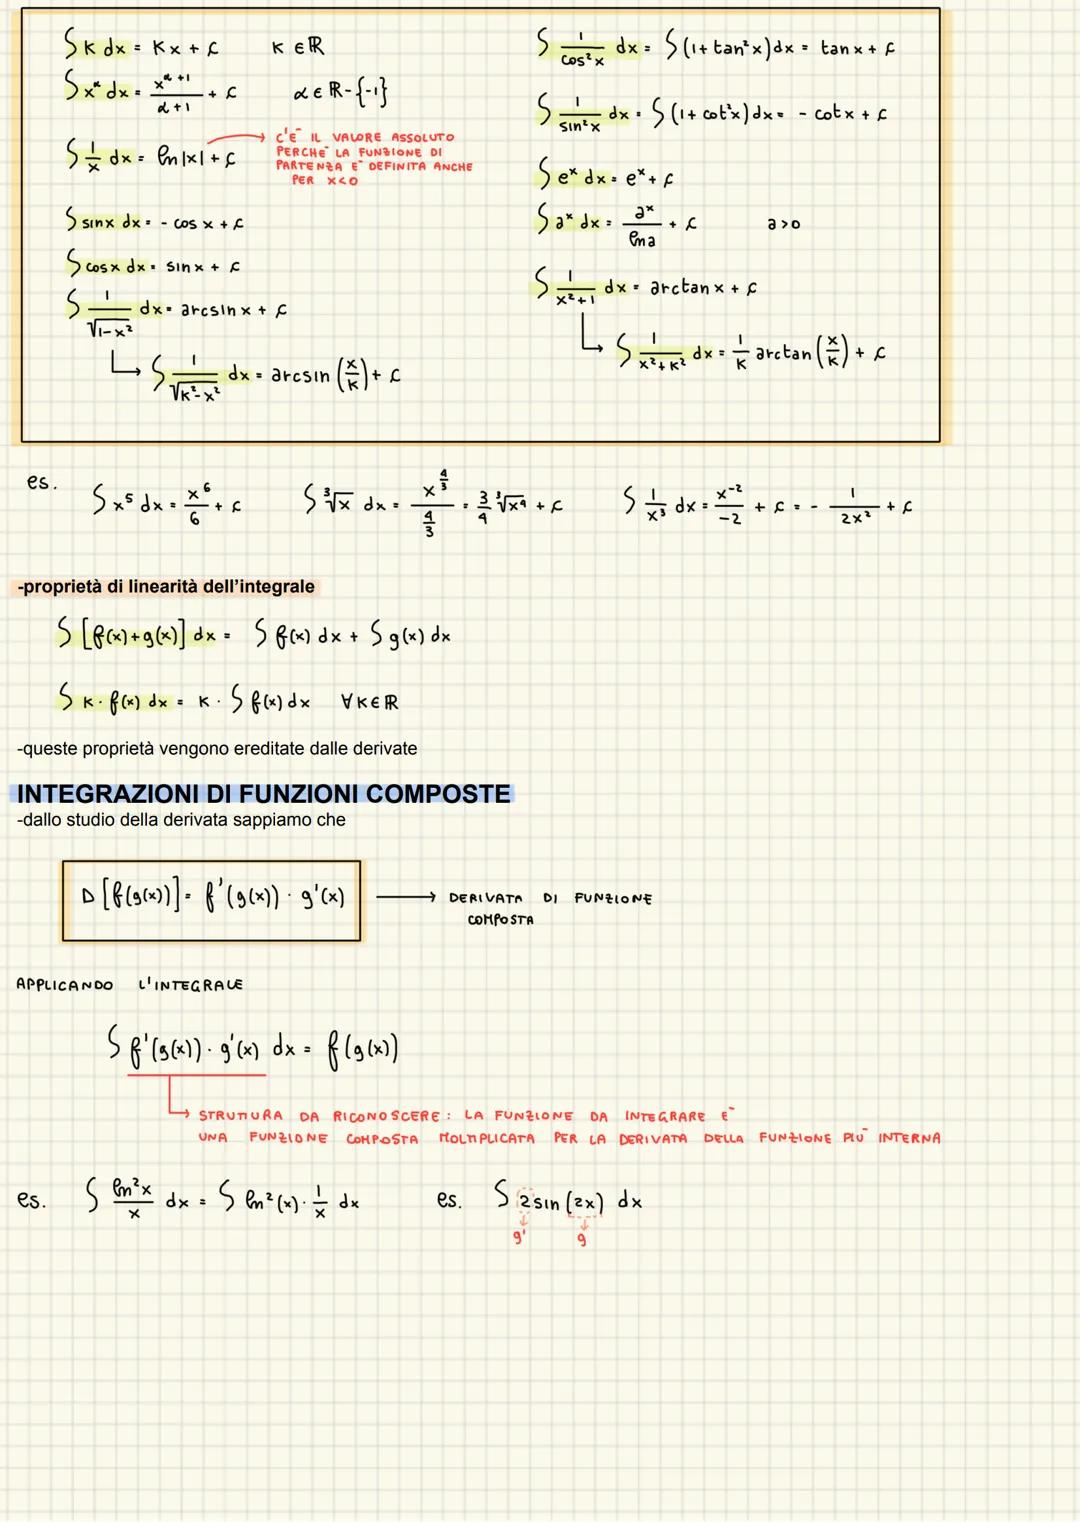 ∫ K dx = Kx + c    K ∈ ℝ
∫ x^α dx = x^(α+1)/(α+1) + c    α ∈ ℝ-{-1}
∫ 1/x dx = ln|x| + c
C'È IL VALORE ASSOLUTO
PERCHÈ LA FUNZIONE DI
PARTENZA È DEFINITA ANCHE
PER X<0
∫ sinx dx = - cos x + c
∫ cosx dx = sinx + c
∫ 1/√(1-x²) dx = arcsin x + c
∫ 1/√(K²-x²) dx = arcsin (x/K) + c
∫ 1/cos²x dx = ∫(1+tan²x)dx = tan x + c
∫ 1/sin²x dx = ∫(1+cot²x)dx = - cotx + c
∫ e^x dx = e^x + c
∫ a^x dx = a^x/ln a + c    a>0
∫ 1/(x²+1) dx = arctan x + c
∫ 1/(x²+K²) dx = 1/K arctan (x/K) + c
es. ∫ x⁵ dx = x⁶/6 + c    ∫ ³√x dx = x^(4/3)/(4/3) = 3/4 ³√x⁴ + c    ∫ 1/x³ dx = x⁻²/-2 + c = - 1/2x² + c
-proprietà di linearità dell'integrale
∫ [f(x)+g(x)] dx = ∫ f(x) dx + ∫ g(x) dx
∫ K·f(x) dx = K · ∫ f(x) dx    ∀K∈ℝ
-queste proprietà vengono ereditate dalle derivate
INTEGRAZIONI DI FUNZIONI COMPOSTE
-dallo studio della derivata sappiamo che
D [f(g(x))] = f'(g(x)) · g'(x) → DERIVATA DI FUNZIONE
COMPOSTA
APPLICANDO L'INTEGRALE
∫ f'(g(x)) · g'(x) dx = f(g(x))
STRUTTURA DA RICONOSCERE: LA FUNZIONE DA INTEGRARE È
UNA FUNZIONE COMPOSTA MOLTIPLICATA PER LA DERIVATA DELLA FUNZIONE PIÙ INTERNA
es. ∫ ln²x/x dx = ∫ ln²(x) · 1/x dx    es. ∫ 2sin(2x) dx
g'    g